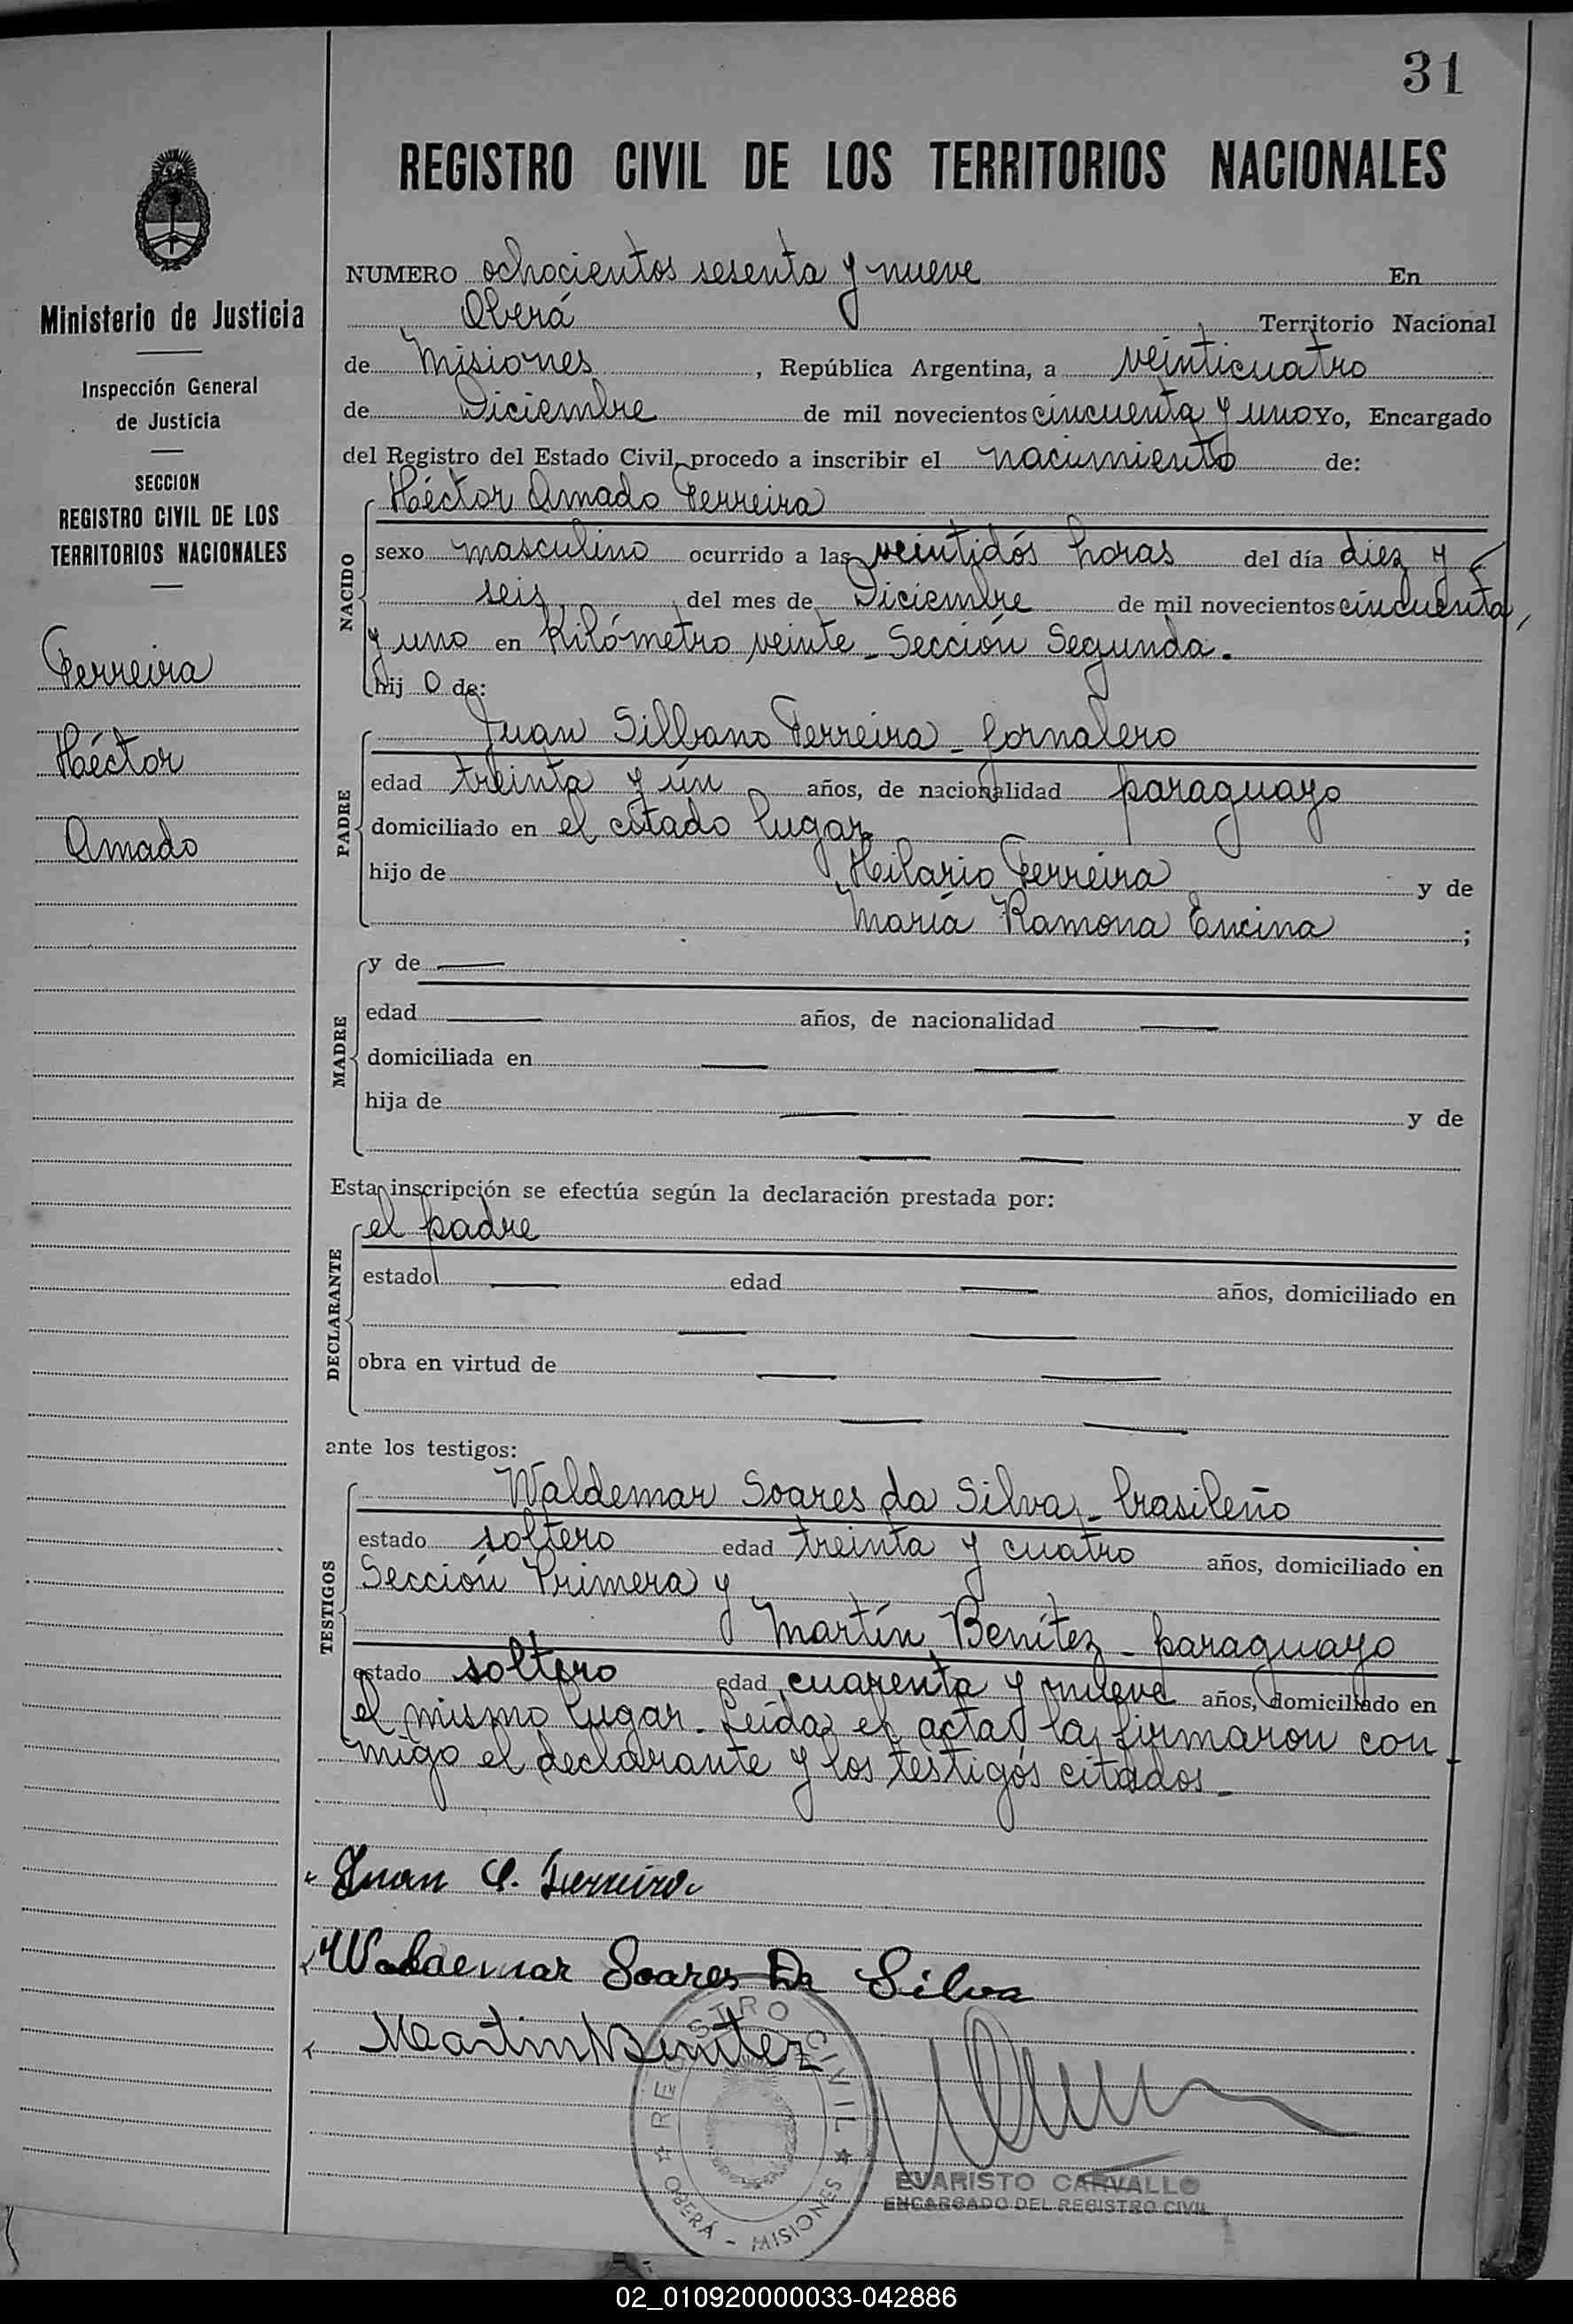 31
REGISTRO CIVIL DE LOS TERRITORIOS NACIONALES
Ministerio de Justicia
Inspección General
de Justicia
SECCION
REGISTRO CIVIL DE LOS
TERRITORIOS NACIONALES
Ferreira
Héctor
Amado
NUMERO ochocientos sesenta y nueve En
Oberá Territorio Nacional
de Misiones, República Argentina, a veinticuatro
de Diciembre de mil novecientos cincuenta y uno Yo, Encargado
del Registro del Estado Civil, procedo a inscribir el nacimiento de:
NACIDO
Héctor Amado Ferreira
sexo masculino ocurrido a las veintidós horas del día diez y
seis del mes de Diciembre de mil novecientos cincuenta
y uno en Kilómetro veinte - Sección Segunda.
hij o de:
PADRE
Juan Silbano Ferreira - Jornalero
edad treinta y ún años, de nacionalidad paraguayo
domiciliado en el citado lugar
hijo de Hilario Ferreira y de
María Ramona Encina ;
MADRE
y de —
edad — años, de nacionalidad —
domiciliada en — —
hija de — — y de
— —
Esta inscripción se efectúa según la declaración prestada por:
DECLARANTE
el padre
estado — edad — años, domiciliado en
— —
obra en virtud de — —
— —
ante los testigos:
TESTIGOS
Waldemar Soares da Silva - brasileño
estado soltero edad treinta y cuatro años, domiciliado en
Sección Primera y
Martín Benítez - paraguayo
estado soltero edad cuarenta y nueve años, domiciliado en
el mismo lugar. Leída el acta la firmaron con-
migo el declarante y los testigos citados -
Juan S. Ferreira
Waldemar Soares Da Silva
Martin Benitez
REGISTRO CIVIL
OBERÁ - MISIONES
EVARISTO CARVALLO
ENCARGADO DEL REGISTRO CIVIL
02_010920000033-042886